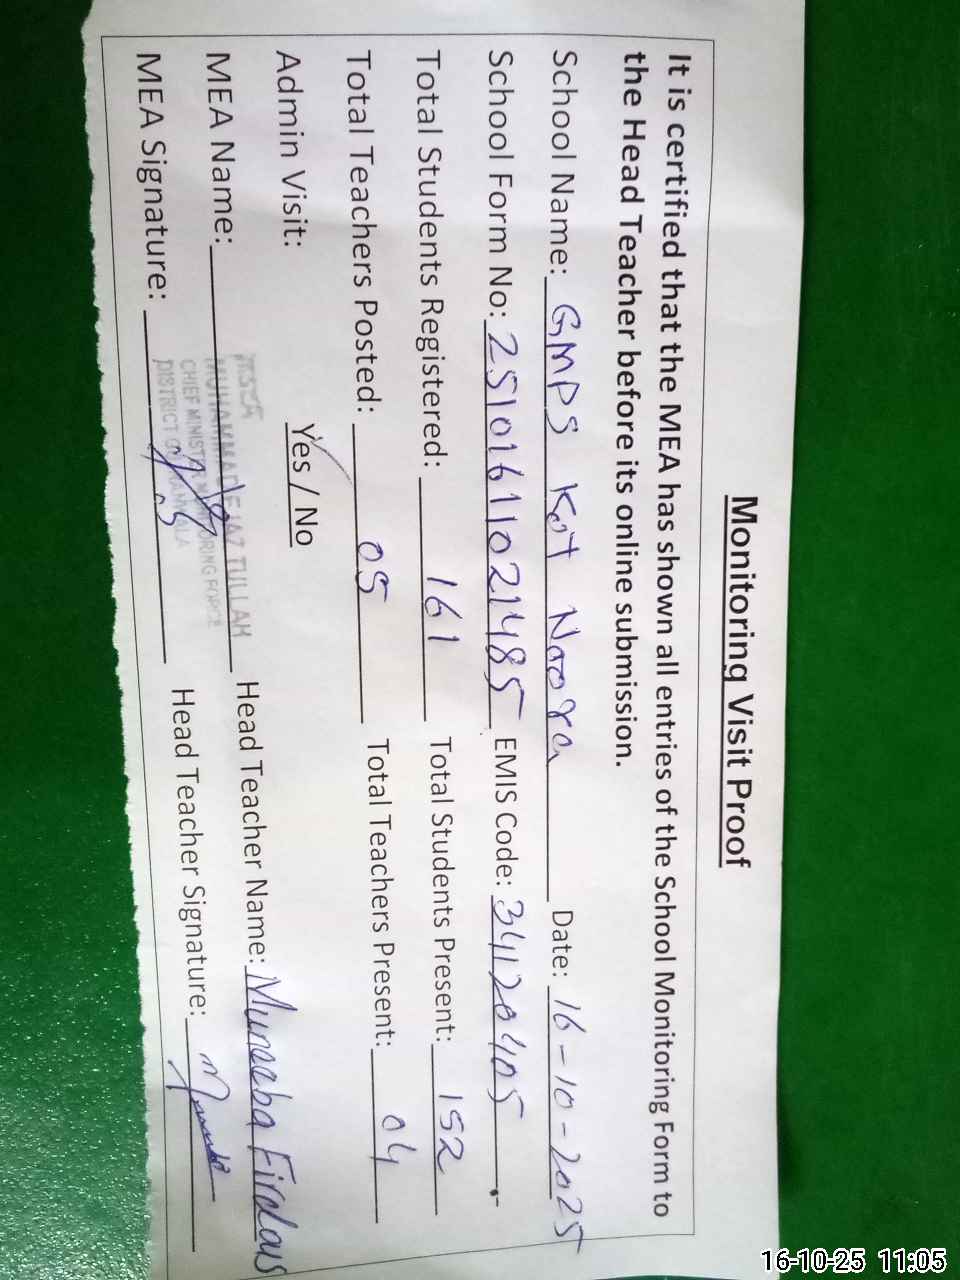 Monitoring Visit Proof
It is certified that the MEA has shown all entries of the School Monitoring Form to
the Head Teacher before its online submission.
School Name: GMPS Kot Noora Date: 16-10-2025
School Form No: 25101611021485 EMIS Code: 34120405
Total Students Registered: 161 Total Students Present: 152
Total Teachers Posted: 05 Total Teachers Present: 04
Admin Visit: Yes / No
MEA Name: Head Teacher Name: Muneeba Firdous
MUHAMMAD
CHIEF MINISTER
DISTRICT
MEA Signature: Head Teacher Signature:
16-10-25 11:05